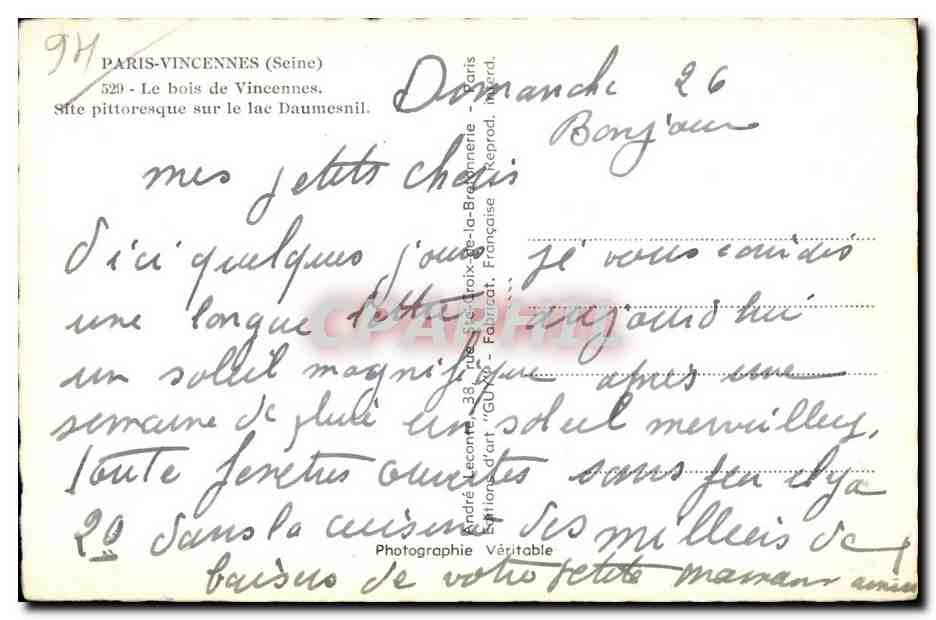 94
PARIS-VINCENNES (Seine)
529 - Le bois de Vincennes.
Site pittoresque sur le lac Daumesnil.
Domanche 26
Bonjour
mes petits cheris
d'ici quelques jours je vous
une longue lettre aujourd'hui
un soleil magnifique après une
semaine de pluie un soleil merveilleux,
toute fenetres ouvertes sans feu il y a
20 dans la cuisine des milliers de
baisers de votre petite maman
André Leconte, 38, rue Ste-Croix-de-la-Bretonnerie - Paris
Editions d'art "GUY" - Fabricat. Française Reprod. interd.
Photographie Véritable
CPARHIL